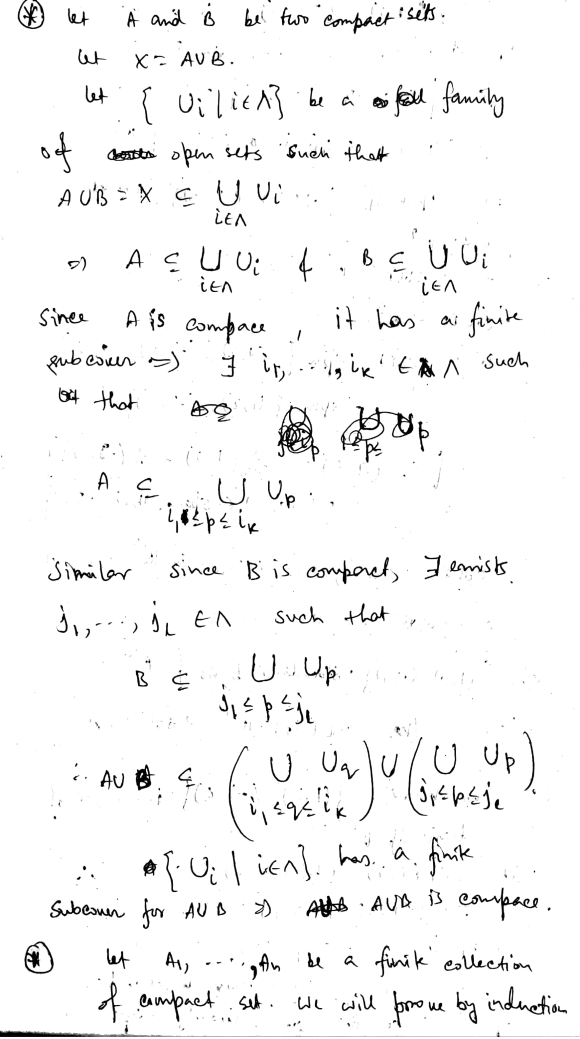 ⊛ let A and B be two compact sets.
let X = A∪B.
let { Ui | i∈Λ} be a family
of open sets such that
A∪B = X ⊆ ⋃ Ui
i∈Λ
⇒ A ⊆ ⋃ Ui & B ⊆ ⋃ Ui
i∈Λ i∈Λ
Since A is compace, it has a finite
subcover ⇒ ∃ i1, ..., ik ∈ Λ such
that
A ⊆ ⋃ Up.
i1≤p≤ik
Similar since B is compact, ∃ exists
j1, ..., jl ∈Λ such that
B ⊆ ⋃ Up.
j1≤p≤jl
∴ A∪B ⊆ (⋃ Uq) ∪ (⋃ Up)
i1≤q≤ik j1≤p≤jl
∴ {Ui | i∈Λ} has a finite
subcover for A∪B ⇒ A∪B is compace.
⊛ let A1, ..., An be a finite collection
of compact set. We will prove by induction